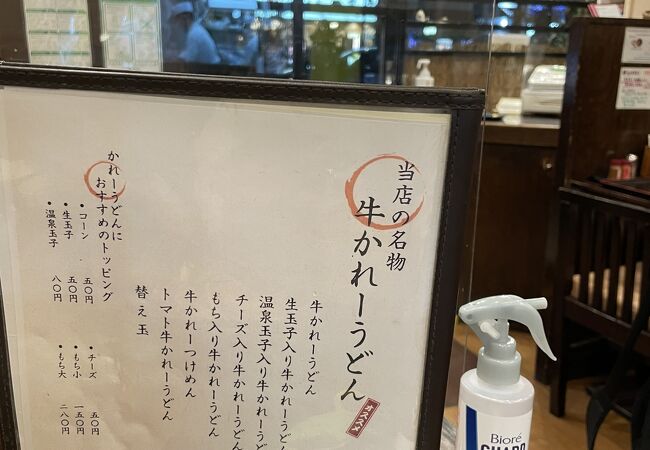 当店の名物
牛かれーうどん
オススメ
牛かれーうどん
生玉子入り牛かれーうどん
温泉玉子入り牛かれーうど
チーズ入り牛かれーうどん
もち入り牛かれーうどん
牛かれーつけめん
トマト牛かれーうどん
替え玉
かれーうどんに
おすすめのトッピング
・コーン 五〇円
・生玉子 五〇円
・温泉玉子 八〇円
・チーズ 五〇円
・もち小 一五〇円
・もち大 二八〇円
Bioré
GUARD